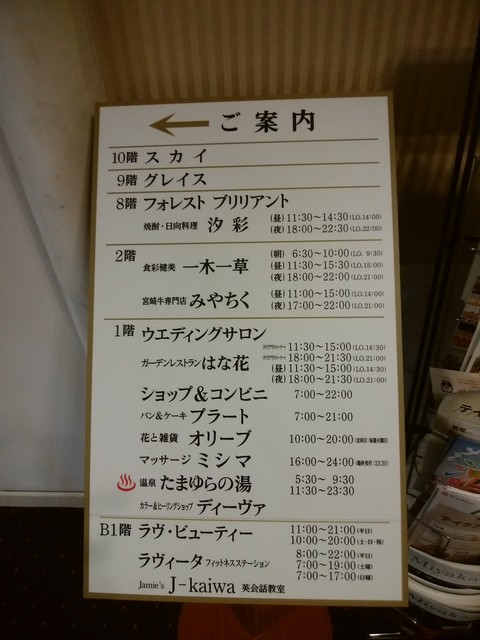 ご案内
10階 スカイ
9階 グレイス
8階 フォレスト ブリリアント
焼酎・日向料理 汐彩 (昼) 11:30～14:30 (LO.14:00)
(夜) 18:00～22:30 (LO.22:00)
2階 食彩健美 一木一草 (朝) 6:30～10:00 (LO. 9:30)
(昼) 11:30～15:30 (LO.15:00)
(夜) 18:00～22:00 (LO.21:00)
宮崎牛専門店 みやちく (昼) 11:00～15:00 (LO.14:00)
(夜) 17:00～22:00 (LO.21:00)
1階 ウエディングサロン
ガーデンレストラン はな花 11:30～15:00 (LO.14:30)
18:00～21:30 (LO.21:00)
(昼) 11:30～15:00 (LO.14:30)
(夜) 18:00～21:30 (LO.21:00)
ショップ&コンビニ 7:00～22:00
パン&ケーキ プラート 7:00～21:00
花と雑貨 オリーブ 10:00～20:00 (定休日:毎週火曜日)
マッサージ ミシマ 16:00～24:00 (最終受付/23:30)
温泉 たまゆらの湯 5:30～ 9:30
11:30～23:30
カラー&ヒーリングショップ ディーヴァ
B1階 ラヴ・ビューティー 11:00～21:00 (平日)
10:00～20:00 (土・日・祝)
ラヴィータ フィットネスステーション 8:00～22:00 (平日)
7:00～19:00 (土曜)
7:00～17:00 (日曜)
Jamie's J-kaiwa 英会話教室
Miyaka